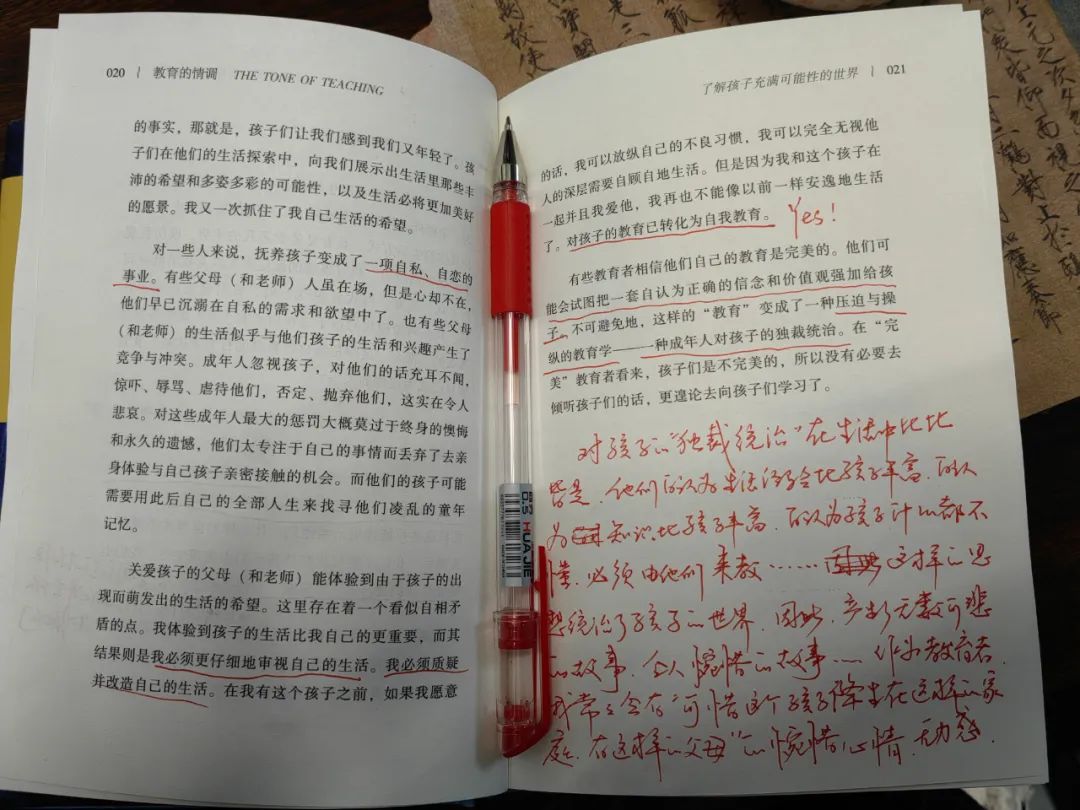 020 | 教育的情调 THE TONE OF TEACHING
的事实，那就是，孩子们让我们感到我们又年轻了。孩
子们在他们的生活探索中，向我们展示出生活里那些丰
沛的希望和多姿多彩的可能性，以及生活必将更加美好
的愿景。我又一次抓住了我自己生活的希望。
对一些人来说，抚养孩子变成了一项自私、自恋的
事业。有些父母（和老师）人虽在场，但是心却不在，
他们早已沉溺在自私的需求和欲望中了。也有些父母
（和老师）的生活似乎与他们孩子的生活和兴趣产生了
竞争与冲突。成年人忽视孩子，对他们的话充耳不闻，
惊吓、辱骂、虐待他们，否定、抛弃他们，这实在令人
悲哀。对这些成年人最大的惩罚大概莫过于终身的懊悔
和永久的遗憾，他们太专注于自己的事情而丢弃了去亲
身体验与自己孩子亲密接触的机会。而他们的孩子可能
需要用此后自己的全部人生来找寻他们凌乱的童年
记忆。
关爱孩子的父母（和老师）能体验到由于孩子的出
现而萌发出的生活的希望。这里存在着一个看似自相矛
盾的点。我体验到孩子的生活比我自己的更重要，而其
结果则是我必须更仔细地审视自己的生活。我必须质疑
并改造自己的生活。在我有这个孩子之前，如果我愿意
了解孩子充满可能性的世界 | 021
的话，我可以放纵自己的不良习惯，我可以完全无视他
人的深层需要自顾自地生活。但是因为我和这个孩子在
一起并且我爱他，我再也不能像以前一样安逸地生活
了。对孩子的教育已转化为自我教育。 Yes！
有些教育者相信他们自己的教育是完美的。他们可
能会试图把一套自认为正确的信念和价值观强加给孩
子。不可避免地，这样的“教育”变成了一种压迫与操
纵的教育学——一种成年人对孩子的独裁统治。在“完
美”教育者看来，孩子们是不完美的，所以没有必要去
倾听孩子们的话，更遑论去向孩子们学习了。
对孩子的“独裁统治”在生活中比比
皆是，他们自认为生活阅历会比孩子丰富，自认
为知识比孩子丰富，自认为孩子什么都不
懂，必须由他们来教……这样的思
想统治了孩子的世界，因此，产生了无数可悲
的故事，令人惋惜的故事……作为教育者，
我常常会有“可惜这个孩子降生在这样的家
庭，有这样的父母”的惋惜心情，无力感。
0.5 HUA JIE